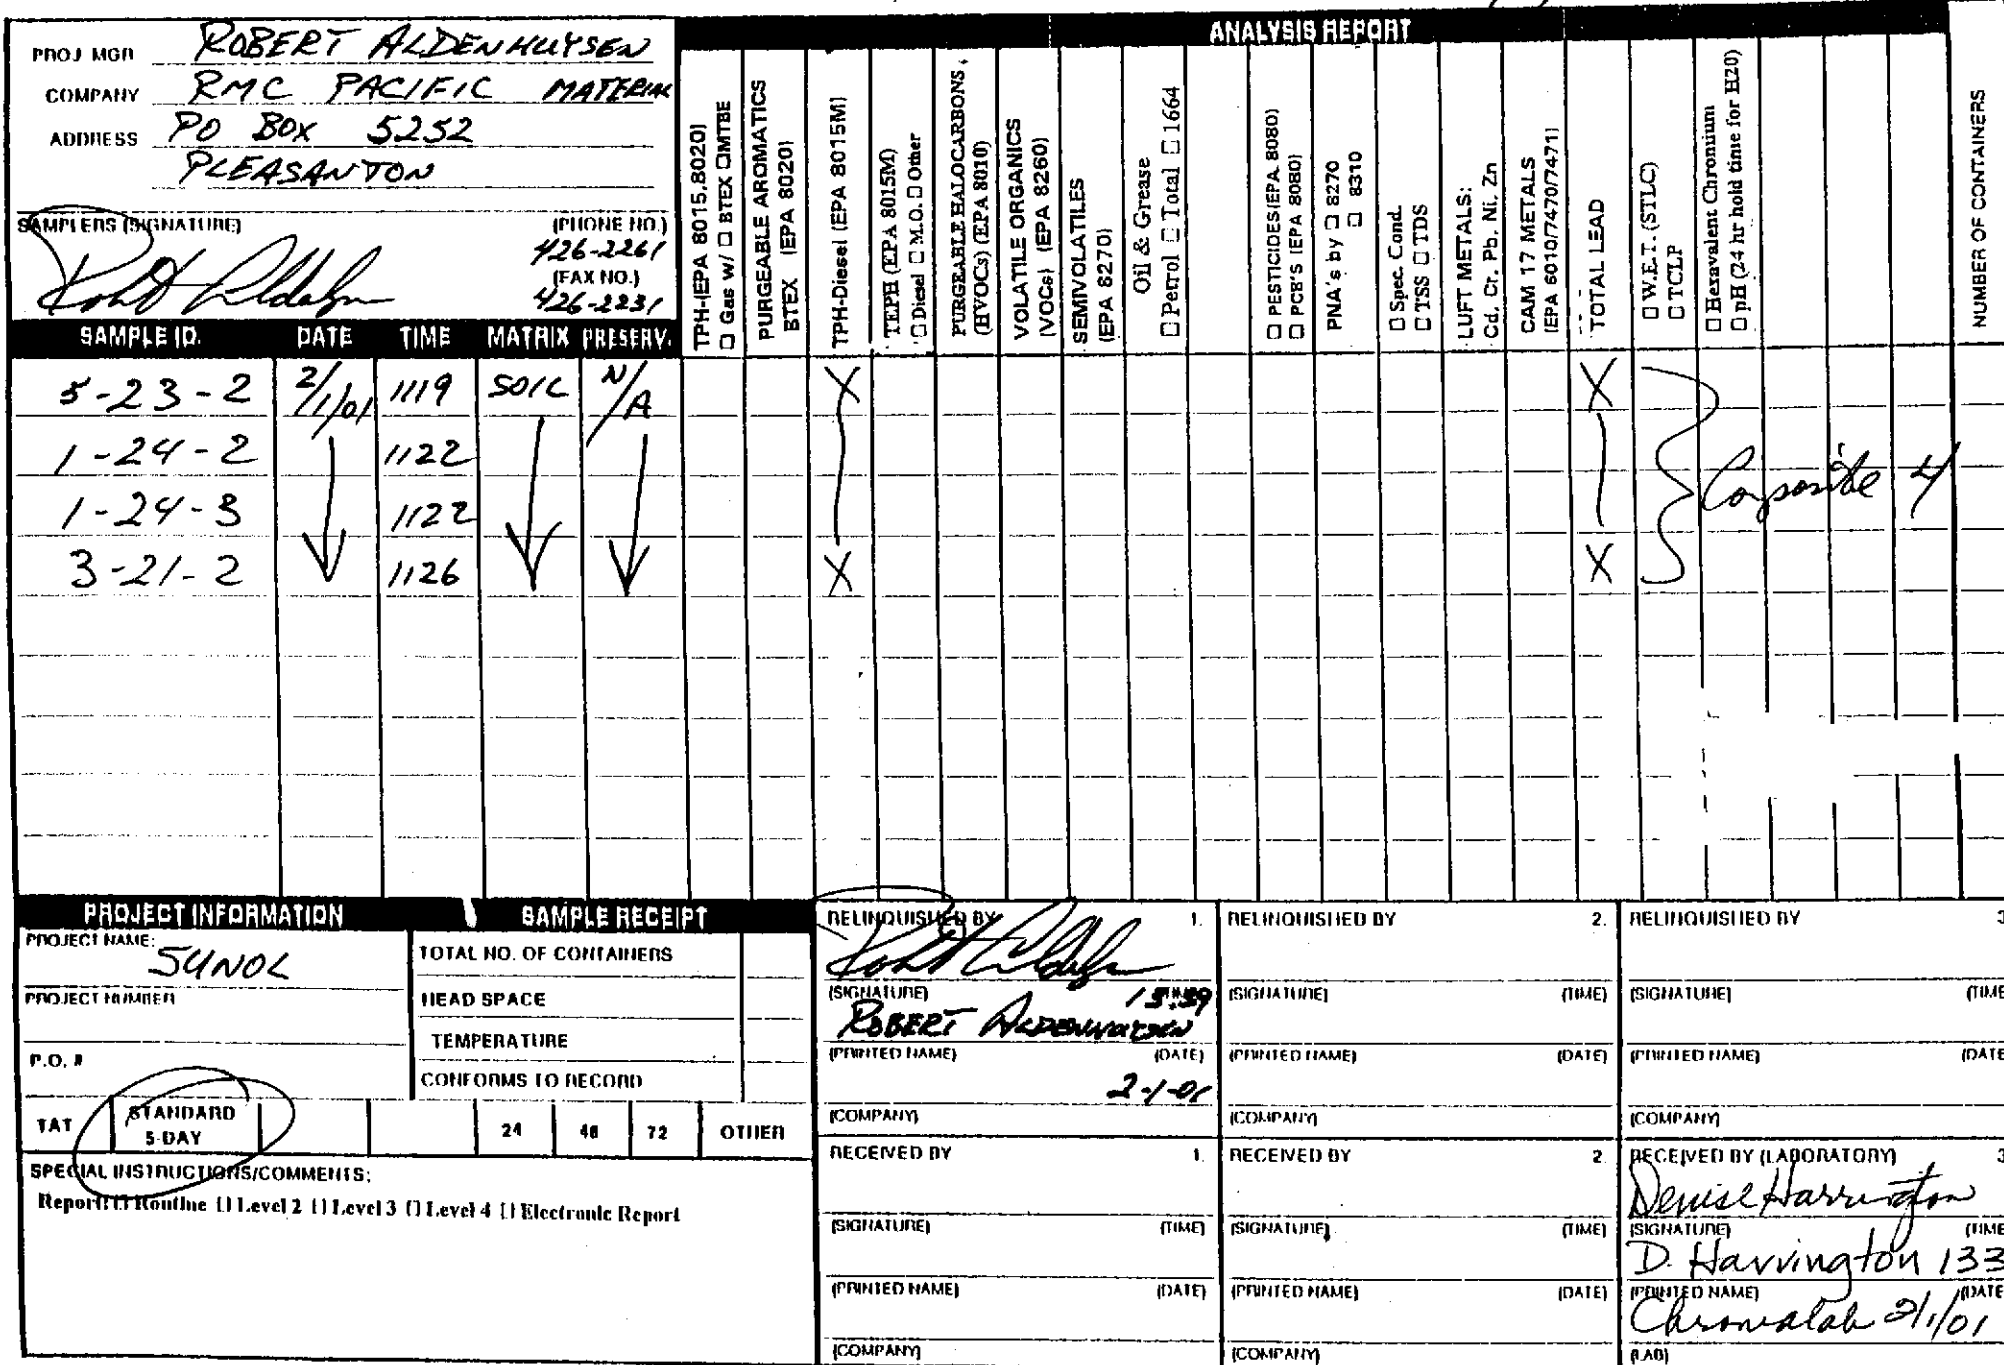 ANALYSIS REPORT
PROJ MGR ROBERT ALDENHUYSEN
COMPANY RMC PACIFIC MATERIAL
ADDRESS PO BOX 5252
PLEASANTON
SAMPLERS (SIGNATURE) (PHONE NO.)
426-2261
(FAX NO.)
426-2231
SAMPLE ID. DATE TIME MATRIX PRESERV.
TPH-(EPA 8015,8020)
□ Gas w/ □ BTEX □MTBE
PURGEABLE AROMATICS
BTEX (EPA 8020)
TPH-Diesel (EPA 8015M)
TEPH (EPA 8015M)
□ Diesel □ M.O. □ Other
PURGEABLE HALOCARBONS
(HVOCs) (EPA 8010)
VOLATILE ORGANICS
(VOCs) (EPA 8260)
SEMIVOLATILES
(EPA 8270)
Oil & Grease
□ Petrol □ Total □ 1664
□ PESTICIDES(EPA 8080)
□ PCB'S (EPA 8080)
PNA's by □ 8270
□ 8310
□ Spec. Cond.
□ TSS □ TDS
LUFT METALS:
Cd, Cr, Pb, Ni, Zn
CAM 17 METALS
(EPA 6010/7470/7471)
□ TOTAL LEAD
□ W.E.T. (STLC)
□ TCLP
□ Hexavalent Chromium
□ pH (24 hr hold time for H20)
NUMBER OF CONTAINERS
5-23-2 2/1/01 1119 SOIL N/A X X
1-24-2 1122
1-24-3 1122 Composite 4
3-21-2 1126 X X
PROJECT INFORMATION SAMPLE RECEIPT
PROJECT NAME:
SUNOL
PROJECT NUMBER
P.O. #
TOTAL NO. OF CONTAINERS
HEAD SPACE
TEMPERATURE
CONFORMS TO RECORD
TAT STANDARD 5-DAY 24 48 72 OTHER
SPECIAL INSTRUCTIONS/COMMENTS:
Report: [] Routine [] Level 2 [] Level 3 [] Level 4 [] Electronic Report
RELINQUISHED BY 1.
(SIGNATURE)
ROBERT ALDENHUYSEN
(PRINTED NAME) (DATE)
2-1-01
(COMPANY)
RELINQUISHED BY 2.
(SIGNATURE) (TIME)
(PRINTED NAME) (DATE)
(COMPANY)
RELINQUISHED BY 3
(SIGNATURE) (TIME
(PRINTED NAME) (DATE
(COMPANY)
RECEIVED BY 1.
(SIGNATURE) (TIME)
(PRINTED NAME) (DATE)
(COMPANY)
RECEIVED BY 2
(SIGNATURE) (TIME)
(PRINTED NAME) (DATE)
(COMPANY)
RECEIVED BY (LABORATORY) 3
Denise Harrington
(SIGNATURE) (TIME
D. Harrington 133
(PRINTED NAME) (DATE
Chromalab 2/1/01
(LAB)